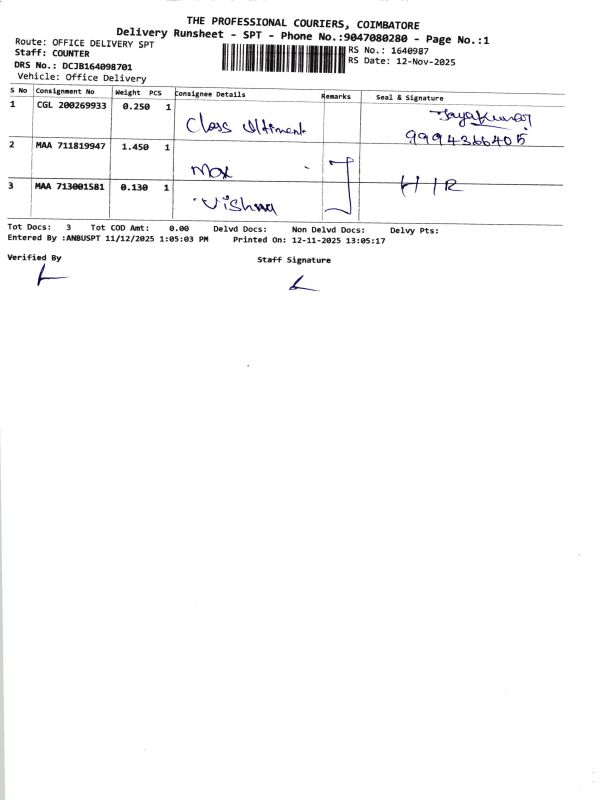 THE PROFESSIONAL COURIERS, COIMBATORE
Delivery Runsheet - SPT - Phone No.:9047080280 - Page No.:1
Route: OFFICE DELIVERY SPT
Staff: COUNTER
DRS No.: DCJB164098701
Vehicle: Office Delivery
RS No.: 1640987
RS Date: 12-Nov-2025
S No Consignment No Weight PCS Consignee Details Remarks Seal & Signature
1 CGL 200269933 0.250 1 Class Jayakumar
9994366405
2 MAA 711819947 1.450 1 Max
3 MAA 713001581 0.130 1 Vishnu HIR
Tot Docs: 3 Tot COD Amt: 0.00 Delvd Docs: Non Delvd Docs: Delvy Pts:
Entered By :ANBUSPT 11/12/2025 1:05:03 PM Printed On: 12-11-2025 13:05:17
Verified By Staff Signature